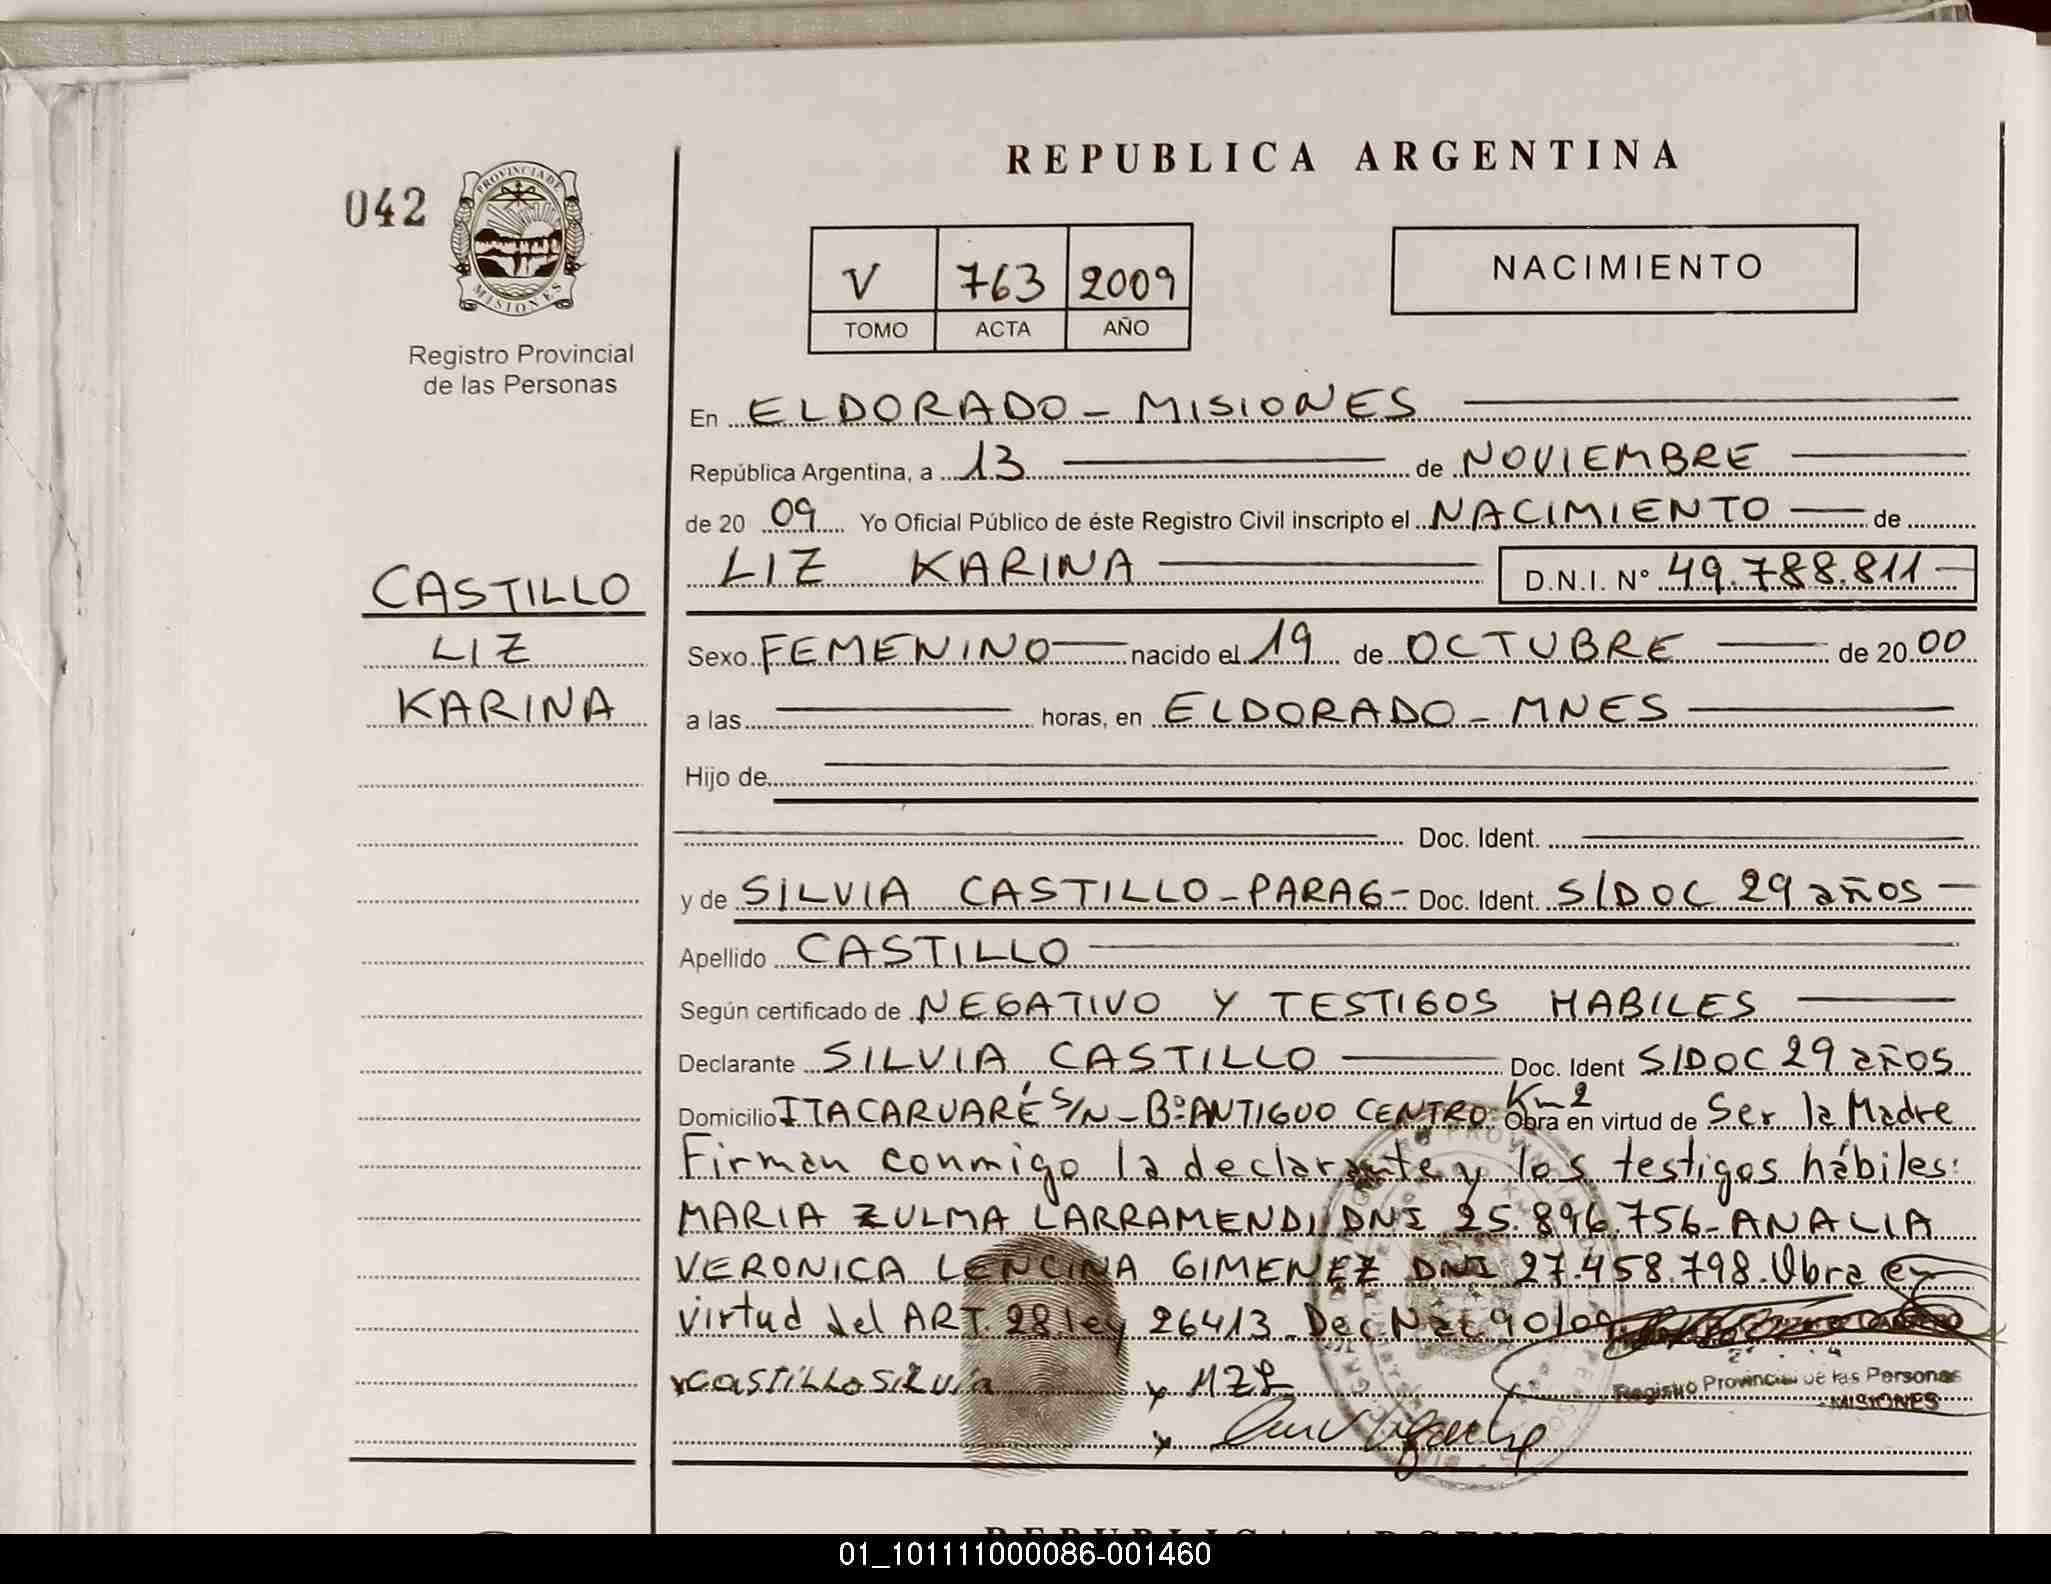 REPUBLICA ARGENTINA
042
PROVINCIA DE
MISIONES
Registro Provincial
de las Personas
V 763 2009
TOMO ACTA AÑO
NACIMIENTO
En ELDORADO - MISIONES
República Argentina, a 13 de NOVIEMBRE
de 20 09 Yo Oficial Público de éste Registro Civil inscripto el NACIMIENTO de
LIZ KARINA D.N.I. N° 49.788.811
CASTILLO
LIZ
KARINA
Sexo FEMENINO nacido el 19 de OCTUBRE de 20 00
a las horas, en ELDORADO - MNES
Hijo de
Doc. Ident.
y de SILVIA CASTILLO - PARAG - Doc. Ident. S/DOC 29 años
Apellido CASTILLO
Según certificado de NEGATIVO Y TESTIGOS HABILES
Declarante SILVIA CASTILLO Doc. Ident S/DOC 29 años
Domicilio ITACARUARÉ S/N - Bº ANTIGUO CENTRO Km 2 Obra en virtud de Ser la Madre
Firman conmigo la declarante y los testigos hábiles:
MARIA ZULMA LARRAMENDI DNI 25.896.756 - ANALIA
VERONICA LENCINA GIMENEZ DNI 27.458.798. Obra en
virtud del ART. 28 ley 26413 Dec. Nac 90/09
x CASTILLO SILVIA x MZL
Registro Provincial de las Personas
MISIONES
x
REPUBLICA ARGENTINA
01_101111000086-001460